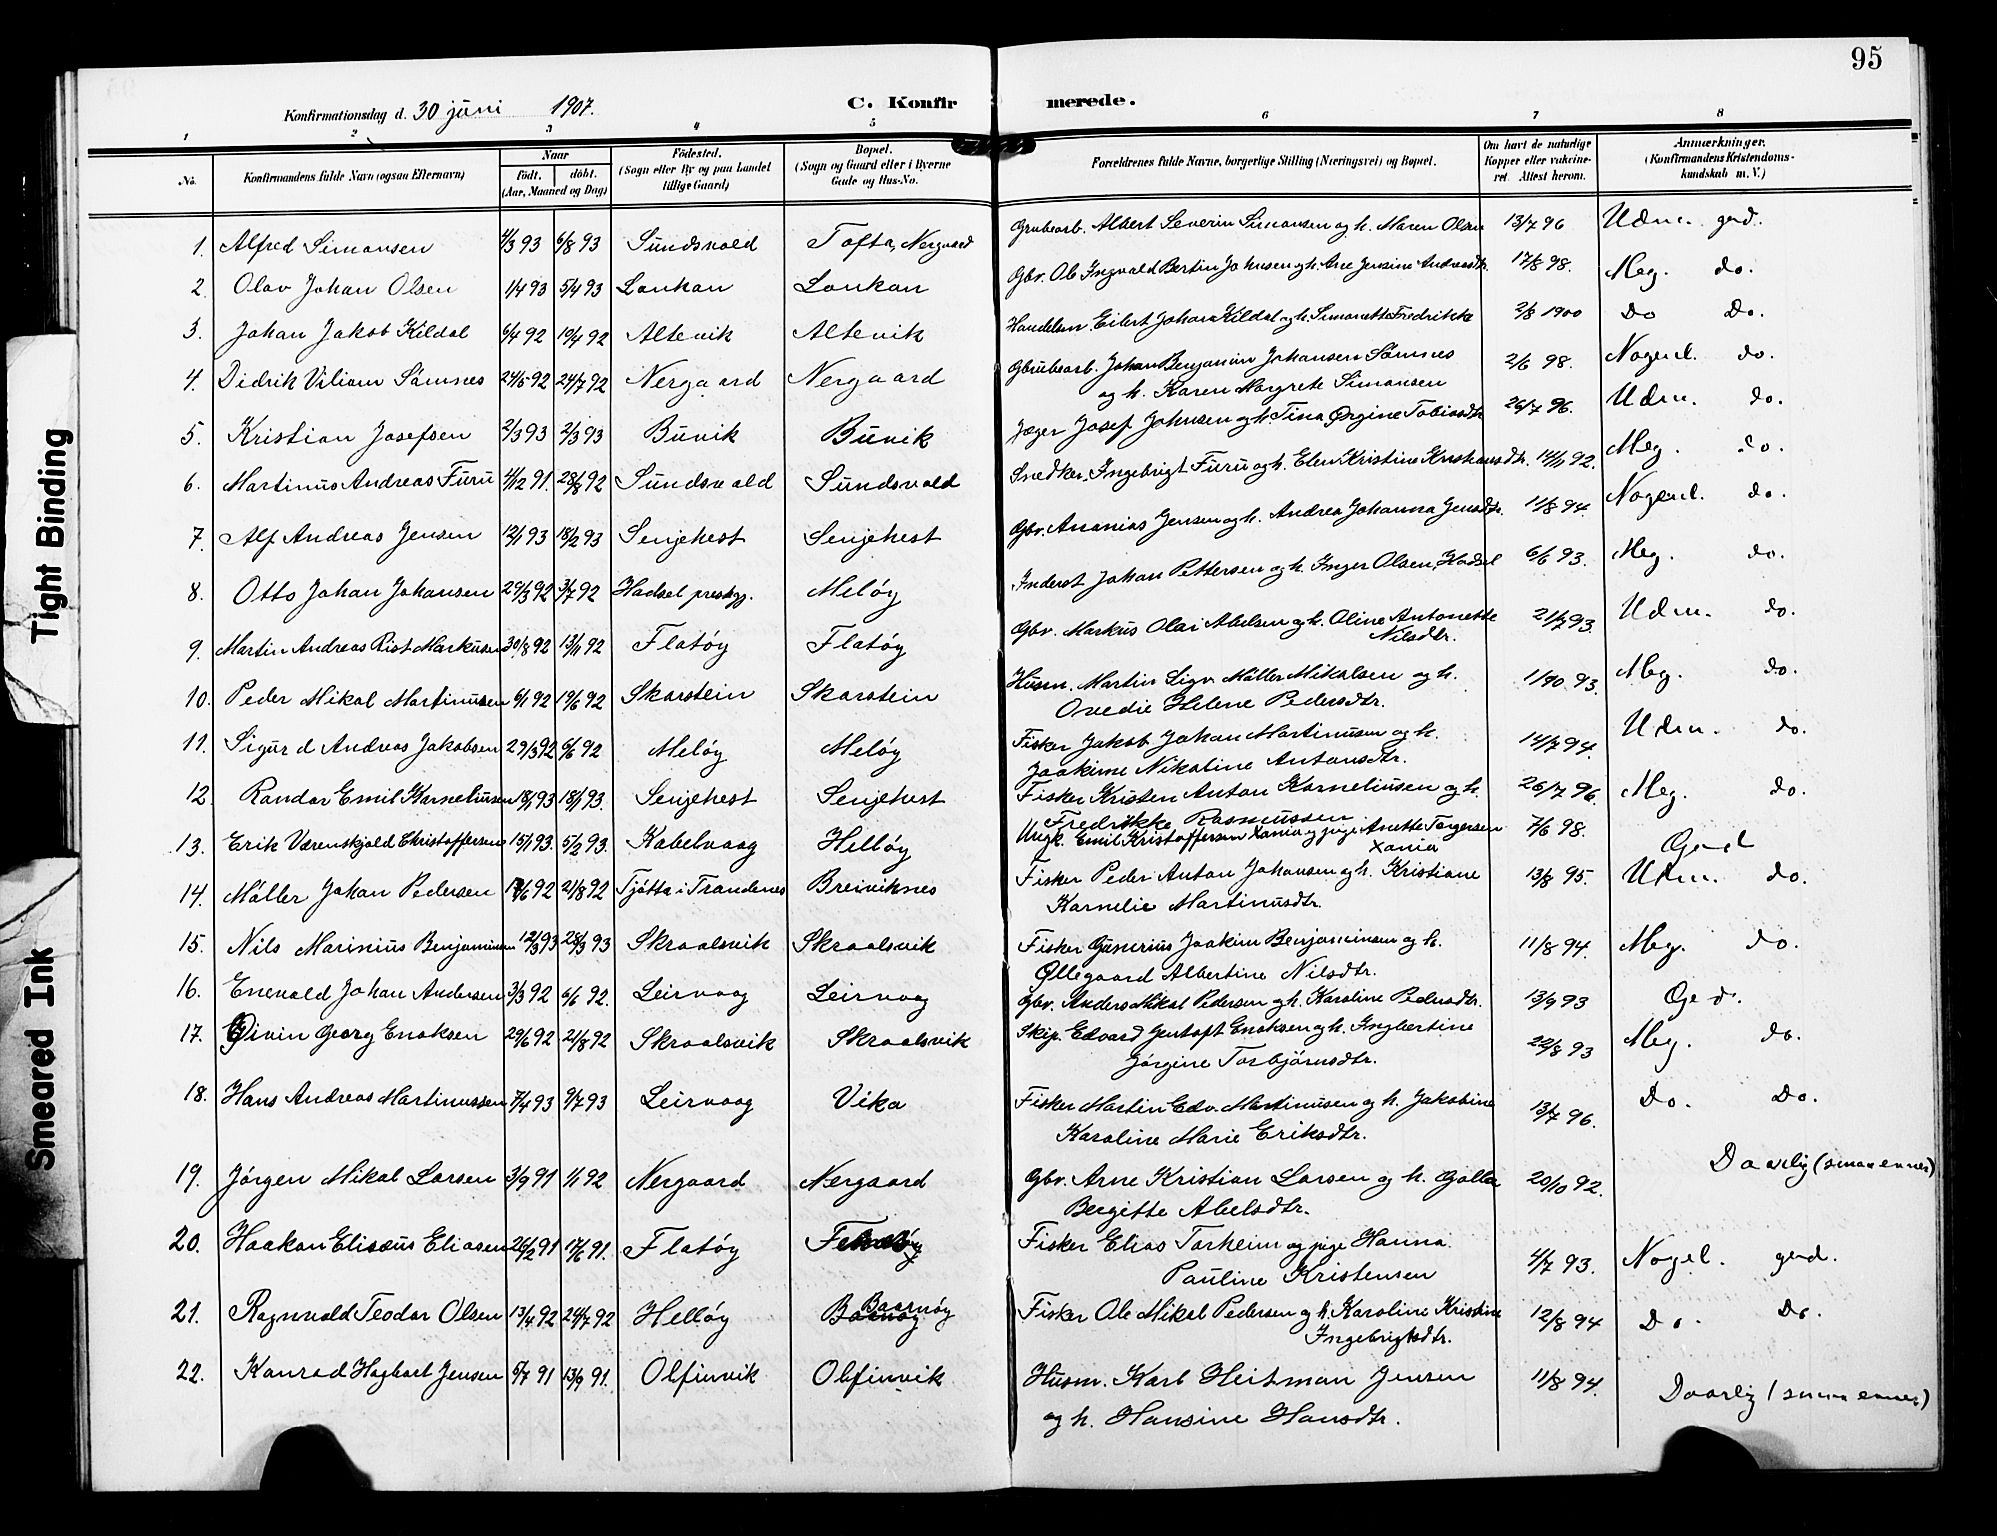 95
Konfirmationsdag d. 30 juni 1907. C. Konfirmerede.
1 2 3 4 5 6 7 8
No. Konfirmandens fulde Navn (ogsaa Efternavn) Naar født. døbt. (Aar, Maaned og Dag) Fødested. (Sogn eller By og paa Landet tillige Gaard) Bopæl. (Sogn og Gaard eller i Byerne Gade og Hus-No. Forældrenes fulde Navne, borgerlige Stilling (Næringsvei) og Bopæl. Om havt de naturlige Kopper eller vaccineret. Attest herom. Anmærkninger. (Konfirmandens Kristendomskundskab m. V.)
1. Alfred Simonsen 4/3 93 6/8 93 Sundsvold Tofta, Nergaard Grubearb. Albert Severin Simonsen og h. Maren Olsen 13/7 96 Udm. god.
2. Olav Johan Olsen 1/4 93 5/4 93 Lonkan Lonkan Gbr. Ole Ingvald Bertin Johnsen og h. Ane Jensine Andreasdtr. 17/8 98. Meg. do.
3. Johan Jakob Kildal 6/4 92 19/4 92 Altevik Altevik Handelsm. Eilert Johan Kildal og h. Simonette Fredrikke 2/8 1900 Do Do.
4. Didrik Viliam Sømnes 24/5 92 24/7 92 Nergaard Nergaard Gbrubearb. Johan Benjamin Johansen Sømnes 2/6 98. Nogenl. do.
og h. Karen Margrete Simonsen
5. Kristian Josefsen 2/3 93 2/3 93 Buvik Buvik Jæger Josef Johnsen og h. Tina Ørgine Tobiasdtr. 26/7 96. Udm. do.
6. Martinus Andreas Furu 4/12 91. 28/8 92 Sundsvold Sundsvold Snedker. Ingebrigt Furu og h. Elen Kristine Kristiansdtr. 14/11 92. Meg. do.
7. Alf Andreas Jensen 12/1 93 18/2 93 Senjehest Senjehest Gbr. Ananias Jensen og h. Andrea Johanna Jensdtr. 11/8 94. Nogenl. do.
8. Otto Johan Johansen 29/3 92 3/7 92 Hadsel prestgj. Meløy Inderst Johan Pettersen og h. Inger Olsen, Hadsel 6/6 93. Meg. do.
9. Martin Andreas Rist Markusen 30/8 92 13/11 92 Flatøy Flatøy Gbr. Markus Olai Abelsen og h. Oline Antonette 21/7 93. Udm. do.
Nilsdtr.
10. Peder Mikal Martinusen 6/1 92 19/6 92 Skarstein Skarstein Husm. Martin Sigv. Møller Mikalsen og h. 1/10 93. Meg. do.
Ovedie Helene Pedersdtr.
11. Sigurd Andreas Jakobsen 29/3 92 6/6 92 Meløy Meløy Fisker Jakob Johan Martinusen og h. 14/7 94. Udm. do.
Joakime Nikoline Antonsdtr.
12. Randor Emil Korneliusen 18/1 93 18/1 93. Senjehest Senjehest Fisker Kristen Anton Korneliusen og h. 26/7 96. Meg. do.
Fredrikke Rasmussen
13. Erik Værenskjold Christoffersen 15/1 93. 5/2 93. Kabelvaag Helløy Ungk. Emil Kristoffersen Xania og pige Anette Torgersen 7/6 98. God
Xania
14. Møller Johan Pedersen 17/6 92 21/8 92 Tjøtta i Trandenes Breiviknes Fisker Peder Anton Johansen og h. Kristiane 13/8 95. Udm. do.
Karnelie Martinusdtr.
15. Nils Marinius Benjaminsen 12/3 93 28/3 93 Skroalsvik Skroalsvik Fisker Gunerius Joakim Benjaminsen og h. 11/8 94. Meg. do.
Øllegaard Albertine Nilsdtr.
16. Enevald Johan Andersen 3/3 92 6/6 92. Leirvaag Leirvaag Gbr. Anders Mikal Pedersen og h. Karoline Pedersdtr. 13/9 93 God.
17. Eivin Georg Enoksen 29/6 92 21/8 92 Skroalsvik Skroalsvik Skip. Edvard Jentoft Enoksen og h. Ingbertine 22/8 93 Meg. do.
Jørgine Torbjørnsdtr.
18. Hans Andreas Martinussen 7/4 93 9/7 93 Leirvaag Vika Fisker Martin Edv. Martinusen og h. Jakobine 13/7 96. Do. Do.
Karoline Marie Eriksdtr.
19. Jørgen Mikal Larsen 3/9 91 1/1 92 Nergaard Nergaard Gbr. Arne Kristian Larsen og h. Golla 20/10 92. Daarlig (smaaevner)
Bergitte Abelsdtr.
20. Haakon Elisæus Eliasen 26/2 91 17/6 91. Flatøy Fisker Elias Torheim og pige Hanna 4/7 93. Nogel. god.
Pauline Kristensen
21. Ragnvald Teodor Olsen 13/4 92 24/7 92 Helløy Baarnøy Fisker Ole Mikal Pedersen og h. Karoline Kristine 12/8 94 Do. Do.
Ingebrigtsdtr.
22. Konrad Hagbart Jensen 5/7 91 13/9 91. Olfinvik Olfinvik Husm. Karl Heitman Jensen 11/8 94. Daarlig (smaaevner)
og h. Hansine Hansdtr.
Tight Binding
Smeared Ink